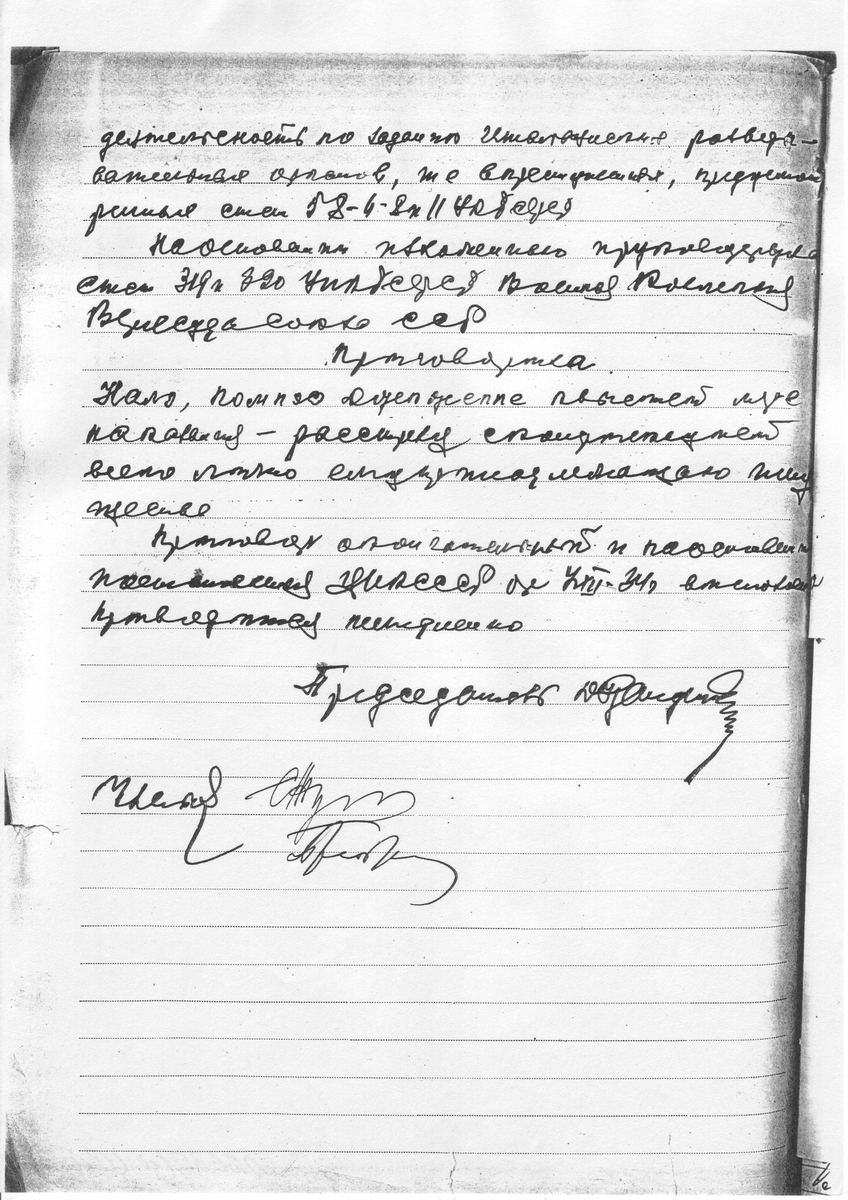 деятельность по заданию Итальянских разведы-
вательных органов, т.е. в преступлениях, предусмот
ренных стат 58-6-8 и 11 УК РСФСР
На основании изложенного и руководствуясь
стат 319 и 320 УПК РСФСР Военная Коллегия
Верхсуда Союза ССР
Приговорила
высшей мере
наказания – расстрелу с конфискацией
всего лично ему принадлежащего иму
щества
Приговор окончательный и на основании
постановления ЦИК СССР от 1/XII-34г. в исполнение
приводится немедленно
Председатель
Члены